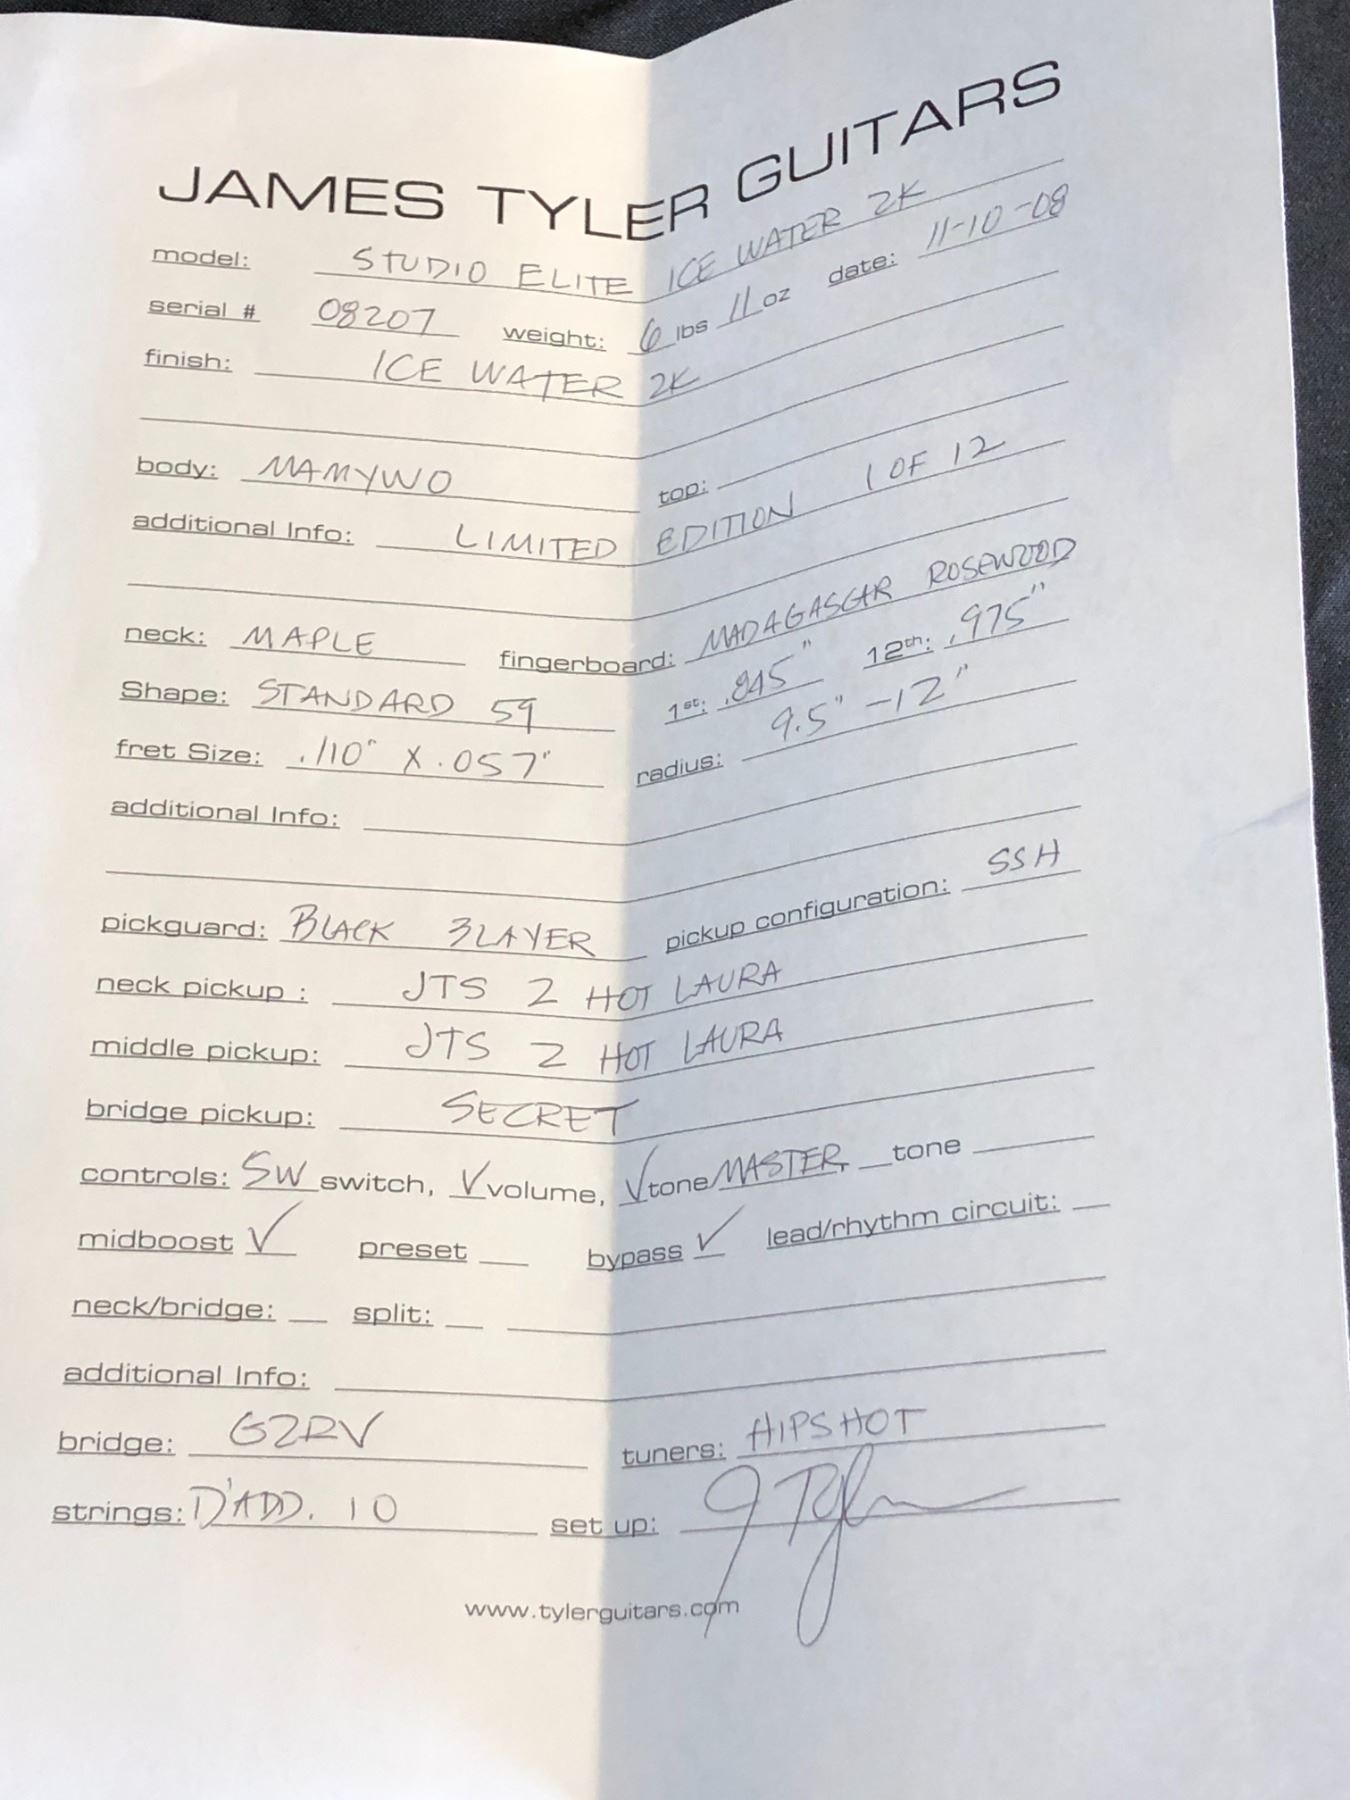 JAMES TYLER GUITARS
model: STUDIO ELITE ICE WATER 2K
serial # 08207 weight: 6 lbs 11 oz date: 11-10-08
finish: ICE WATER 2K
body: MAMYWO top:
additional Info: LIMITED EDITION 1 OF 12
neck: MAPLE fingerboard: MADAGASCAR ROSEWOOD
Shape: STANDARD 59 1st: .845" 12th: .975"
fret Size: .110" X .057" radius: 9.5" - 12"
additional Info:
pickguard: BLACK 3LAYER pickup configuration: SSH
neck pickup : JTS 2 HOT LAURA
middle pickup: JTS 2 HOT LAURA
bridge pickup: SECRET
controls: 5W switch, √ volume, √ tone MASTER, tone
midboost √ preset bypass √ lead/rhythm circuit:
neck/bridge: split:
additional Info:
bridge: G2RV tuners: HIPSHOT
strings: D'ADD. 10 set up: J Tyler
www.tylerguitars.com